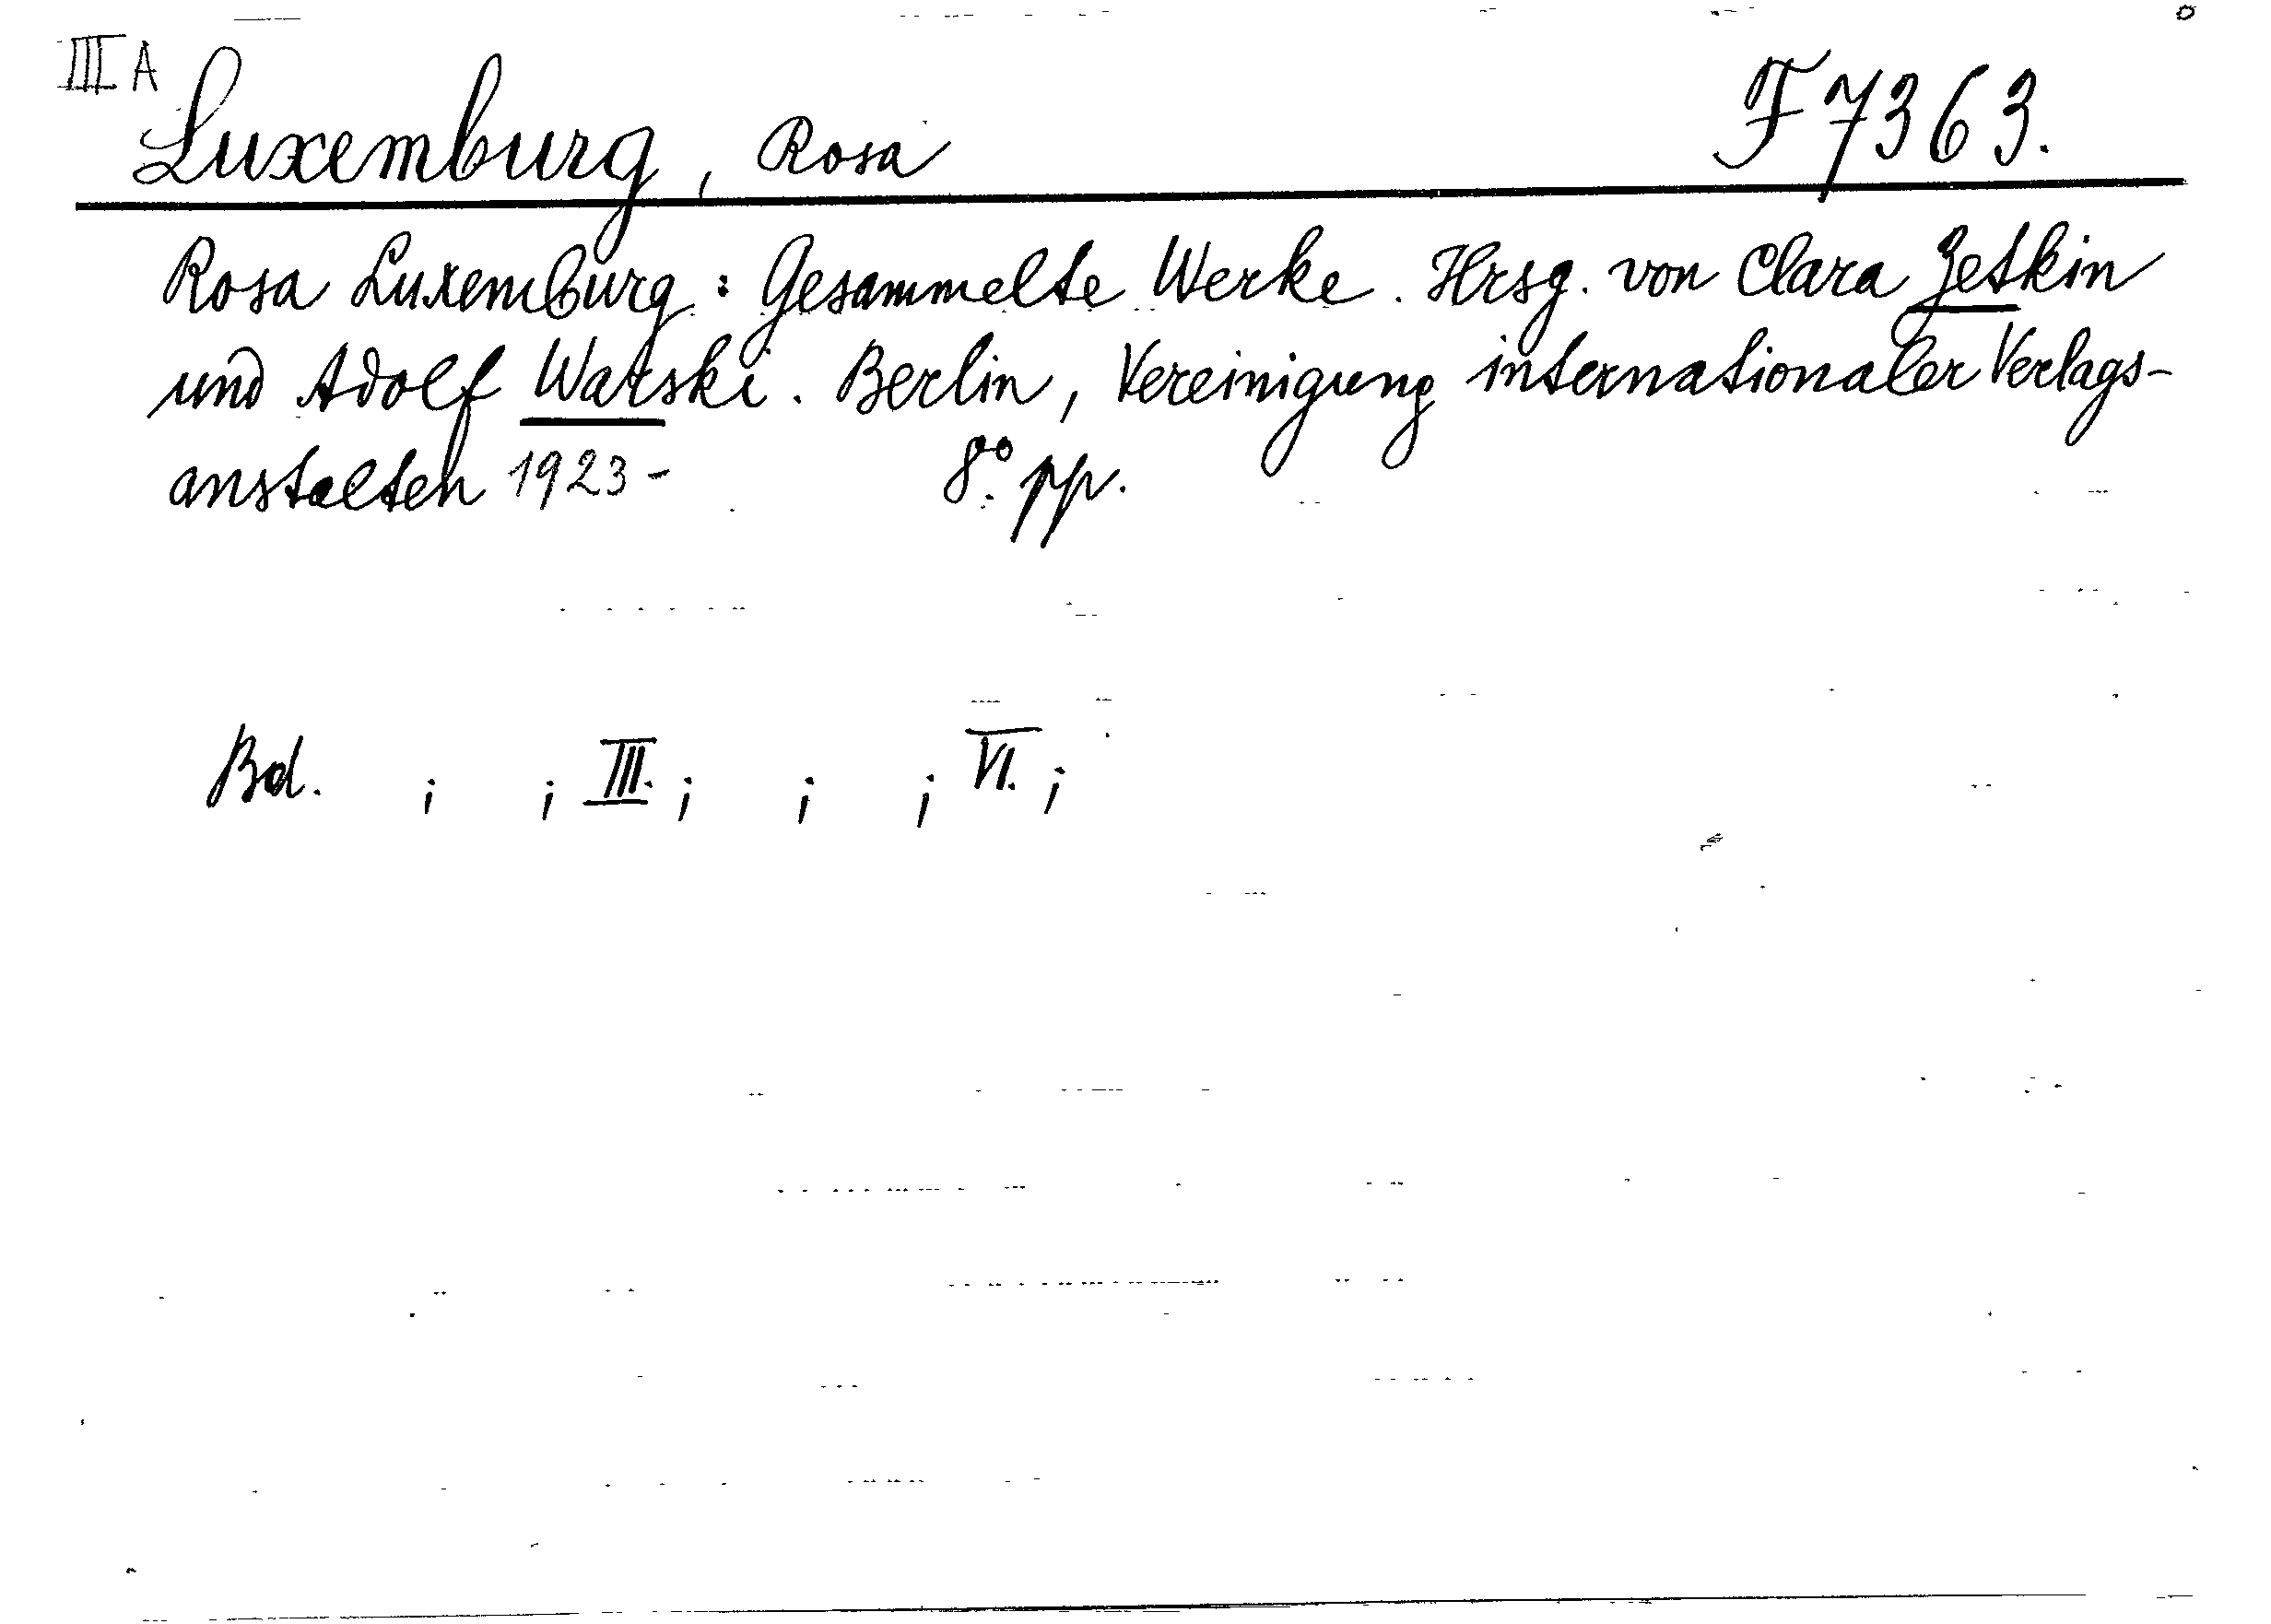 III A
Luxemburg, Rosa F 7363.
Rosa Luxemburg: Gesammelte Werke. Hrsg. von Clara Zetkin
und Adolf Warski. Berlin, Vereinigung internationaler Verlags-
anstalten 1923- 8° pp.
Bd. ; ; III. ; ; ; VI. ;